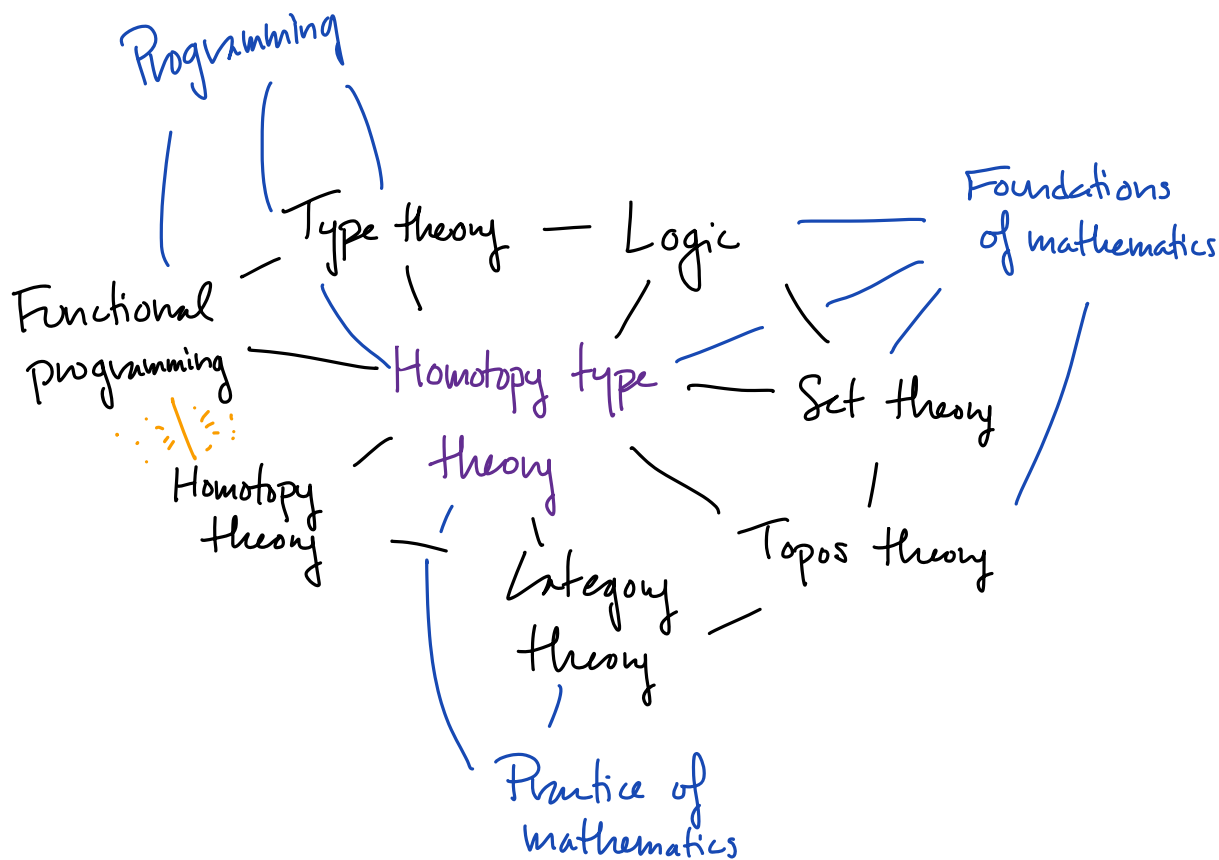 Programming
Type theory
Logic
Foundations
of mathematics
Functional
programming
Homotopy type
theory
Set theory
Homotopy
theory
Topos theory
Category
theory
Practice of
mathematics